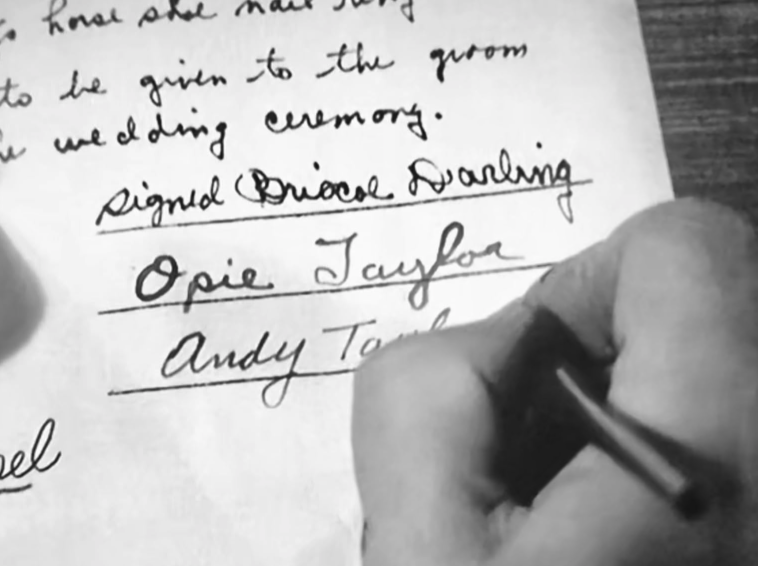 horse shoe nail ring
to be given to the groom
wedding ceremony.
signed Briscoe Darling
Opie Taylor
Andy